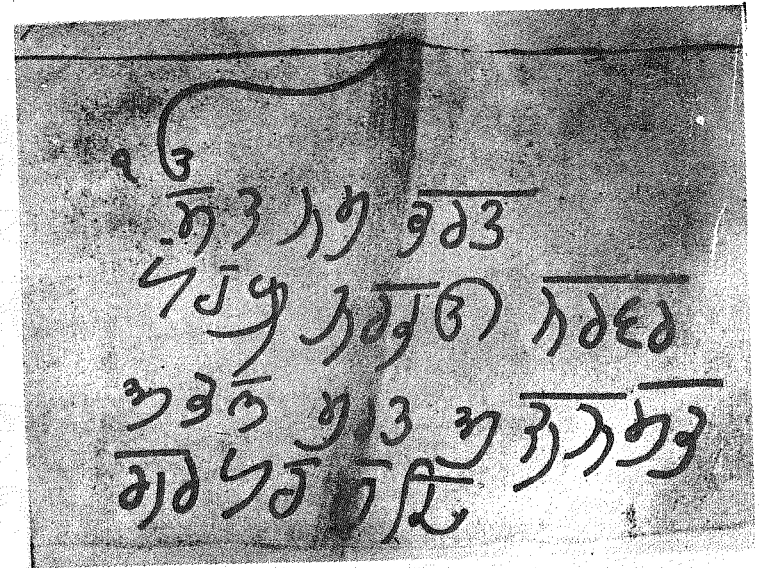 ੴ
ਸਤ ਨਮ ਕਰਤ
ਪਰਖ ਨਰਭਉ ਨਰਵਰ
ਅਕਲ ਮਰਤ ਅਜਨਸਭ
ਗਰ ਪਰ ਸਦਿ